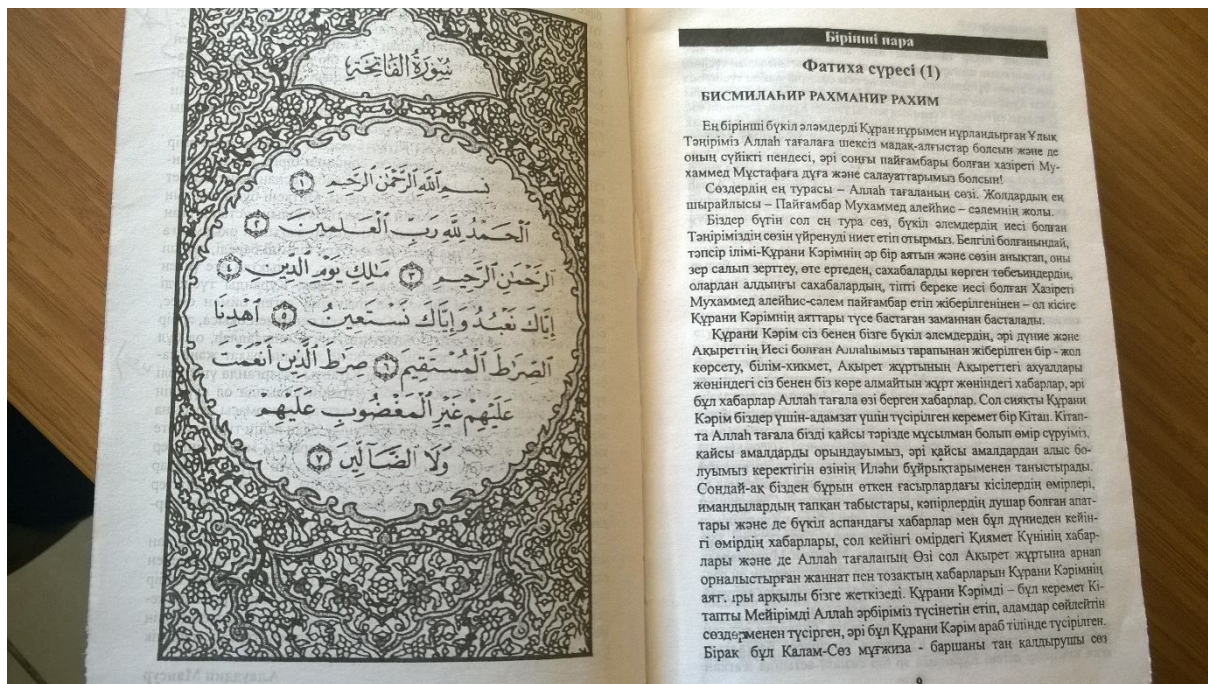 سُورَةُ الْفَاتِحَةِ
بِسْمِ ٱللَّهِ ٱلرَّحْمَٰنِ ٱلرَّحِيمِ ١
ٱلْحَمْدُ لِلَّهِ رَبِّ ٱلْعَٰلَمِينَ ٢
ٱلرَّحْمَٰنِ ٱلرَّحِيمِ ٣ مَٰلِكِ يَوْمِ ٱلدِّينِ ٤
إِيَّاكَ نَعْبُدُ وَإِيَّاكَ نَسْتَعِينُ ٥ ٱهْدِنَا
ٱلصِّرَٰطَ ٱلْمُسْتَقِيمَ ٦ صِرَٰطَ ٱلَّذِينَ أَنْعَمْتَ
عَلَيْهِمْ غَيْرِ ٱلْمَغْضُوبِ عَلَيْهِمْ
وَلَا ٱلضَّآلِّينَ ٧
Бірінші пара
Фатиха сүресі (1)
БИСМИЛАҺИР РАХМАНИР РАХИМ
Ең бірінші бүкіл әләмдерді Құран нұрымен нұрландырған Ұлық
Тәңіріміз Аллаһ тағалаға шексіз мадақ-алғыстар болсын және де
оның сүйікті пендесі, әрі соңғы пайғамбары болған хазіреті Му-
хаммед Мұстафаға дұға және салауаттарымыз болсын!
Сөздердің ең турасы – Аллаһ тағаланың сөзі. Жолдардың ең
шырайлысы – Пайғамбар Мухаммед алейһис – сәлемнің жолы.
Біздер бүгін сол ең тура сөз, бүкіл әлемдердің иесі болған
Тәңіріміздің сөзін үйренуді ниет етіп отырмыз. Белгілі болғанындай,
тәпсір ілімі-Құрани Кәрімнің әр бір аятын және сөзін анықтап, оны
зер салып зерттеу, өте ертеден, сахабаларды көрген төбеъиндердің,
олардан алдыңғы сахабалардың, тіпті береке иесі болған Хазіреті
Мухаммед алейһис-сәлем пайғамбар етіп жіберілгенінен – ол кісіге
Құрани Кәрімнің аяттары түсе бастаған заманнан басталады.
Құрани Кәрім сіз бенен бізге бүкіл әлемдердің, әрі дүние және
Ақыреттің Иесі болған Аллаһымыз тарапынан жіберілген бір - жол
көрсету, білім-хикмет, Ақырет жұртының Ақыреттегі ахуалдары
жөніндегі сіз бенен біз көре алмайтын жұрт жөніндегі хабарлар, әрі
бұл хабарлар Аллаһ тағала өзі берген хабарлар. Сол сияқты Құрани
Кәрім біздер үшін-адамзат үшін түсірілген керемет бір Кітап. Кітап-
та Аллаһ тағала бізді қайсы тәрізде мұсылман болып өмір сүруіміз,
қайсы амалдарды орындауымыз, әрі қайсы амалдардан алыс бо-
луымыз керектігін өзінің Илаһи бұйрықтарыменен таныстырады.
Сондай-ақ бізден бұрын өткен ғасырлардағы кісілердің өмірлері,
имандылардың тапқан табыстары, кәпірлердің душар болған апат-
тары және де бүкіл аспандағы хабарлар мен бұл дүниеден кейін-
гі өмірдің хабарлары, сол кейінгі омірдегі Қиямет Күнінің хабар-
лары және де Аллаһ тағаланың Өзі сол Ақырет жұртына арнап
орналыстырған жаннат пен тозақтың хабарларын Құрани Кәрімнің
аят. ры арқылы бізге жеткізеді. Құрани Кәрімді – бұл керемет Кі-
тапты Мейірімді Аллаһ әрбіріміз түсінетін етіп, адамдар сөйлейтін
сөздерменен түсірген, әрі бұл Құрани Кәрім араб тілінде түсірілген.
Бірақ бұл Калам-Сөз мұғжиза - баршаны таң қалдырушы сөз
9